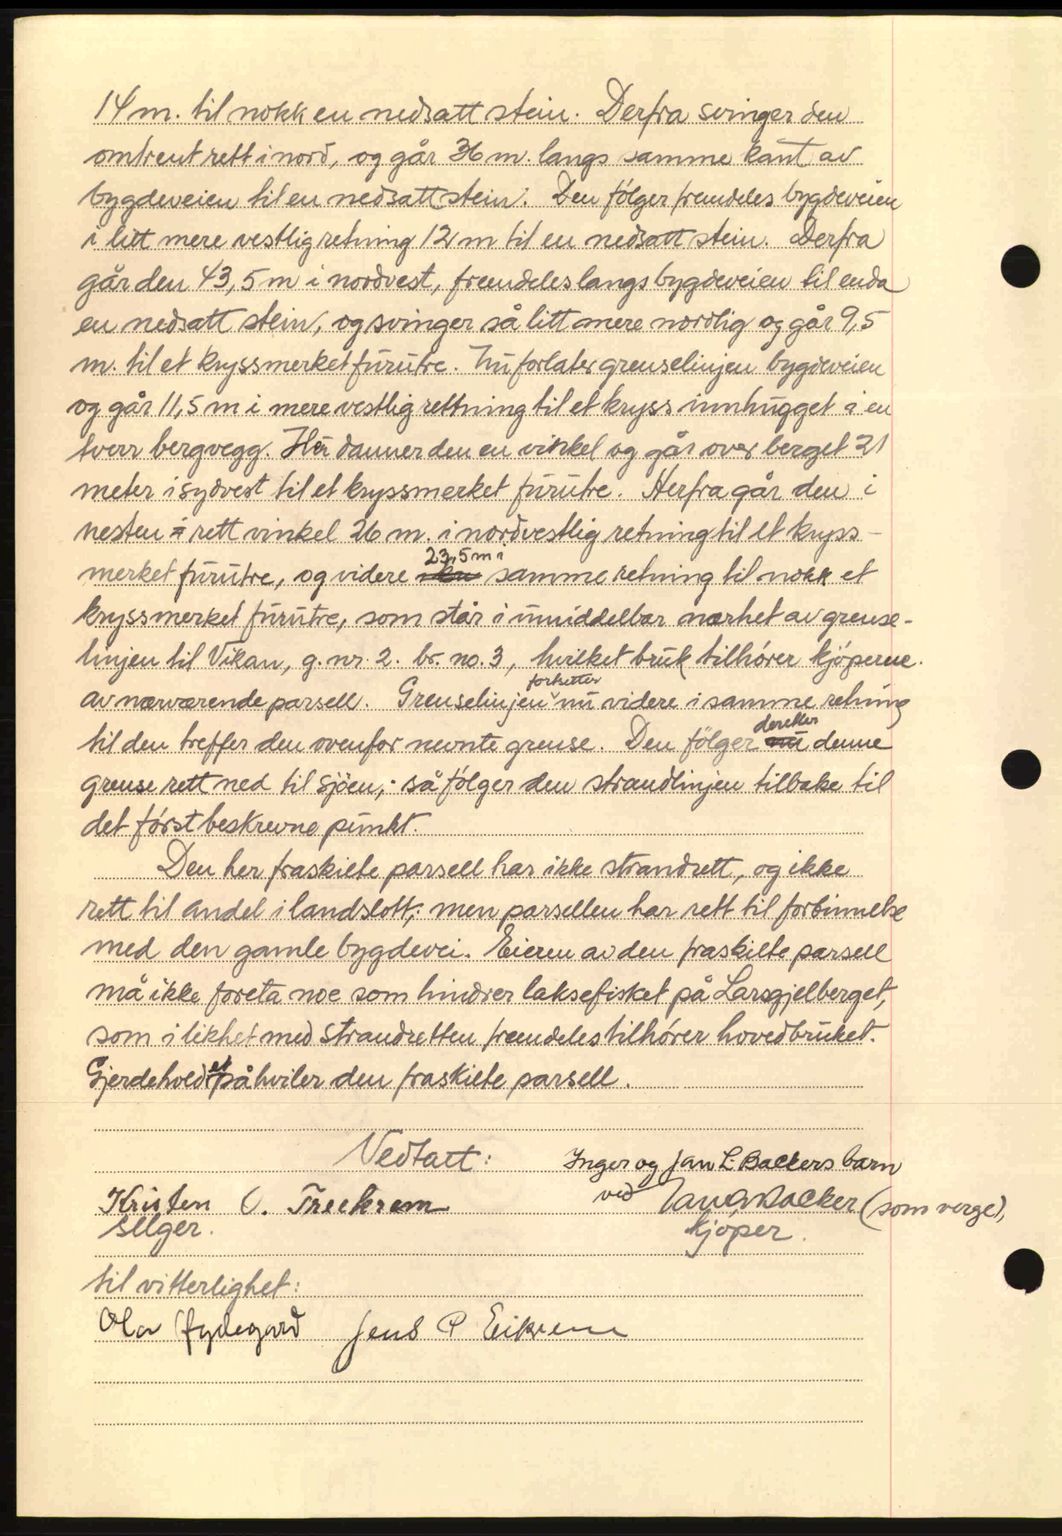 14 m. til nokk en nedsatt stein. Derfra svinger den
omtrent rett i nord, og går 36 m. langs samme kant av
bygdeveien til en nedsatt stein. Den følger fremdeles bygdeveien
i litt mere vestlig retning 12 m til en nedsatt stein. Derfra
går den 43,5 m i nordvest, fremdeles langs bygdeveien til enda
en nedsatt stein, og svinger så litt mere nordlig og går 9,5
m. til et kryssmerket furutre. Nu forlater grenselinjen bygdeveien
og går 11,5 m i mere vestlig rettning til et kryss innhugget i en
tverr bergvegg. Her danner den en vinkel og går over berget 21
meter i sydvest til et kryssmerket furutre. Herfra går den i
nesten rett vinkel 26 m. i nordvestlig retning til et kryss-
merket furutre, og videre 23,5 m i samme retning til nokk et
kryssmerket furutre, som står i umiddelbar nærhet av grense-
linjen til Vikan, g. nr. 2. br. no. 3, hvilket bruk tilhører kjøperne
av nærværende parsell. Grenselinjen fortsetter nu videre i samme retning
til den treffer den ovenfor nevnte grense. Den følger deretter denne
grense rett ned til sjøen; så følger den strandlinjen tilbake til
det først beskrevne punkt.
Den her fraskilte parsell har ikke strandrett, og ikke
rett til andel i landslott; men parsellen har rett til forbinnelse
med den gamle bygdevei. Eieren av den fraskilte parsell
må ikke foreta noe som hindrer laksefisket på Larsgjelberget,
som i likhet med strandretten fremdeles tilhører hovedbruket.
Gjerdeholdet påhviler den fraskilte parsell.
Vedtatt: Inger og Jan L. Backers barn
Kristen O. Treekrem ved Jan Backer (som verge),
selger. kjøper.
til vitterlighet:
Ola Jens P Eikrem